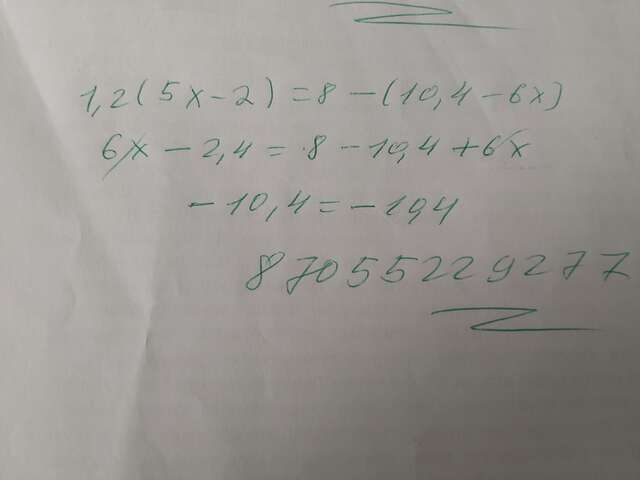 1,2(5x-2)=8-(10,4-6x)
6x-2,4=8-10,4+6x
-10,4=-10,4
87055229277